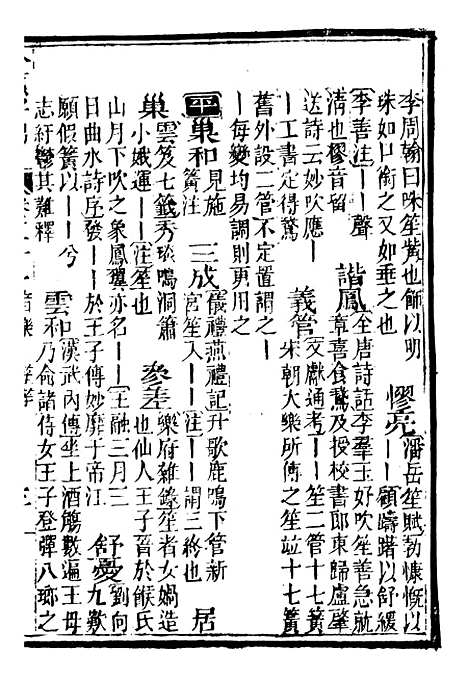 李周翰曰咮笙黃也飾以明
珠如口銜之又如垂之也
憀亮
潘岳笙賦勃慷慨以
——顧躊躇以舒緩
李善注——聲
清也樛音留
諧鳳
全唐詩話李羣玉好吹笙善急就
章喜食鵞及授校書郎東歸盧肇
送詩云妙吹應——
—工書定得鵞
義管
文獻通考——笙二管十七簧
宋朝大樂所傳之笙並十七簧
舊外設二管不定置謂之—
—每變均易調則更用之
平
巢和
見施
簧注
三成
儀禮燕禮記升歌鹿鳴下管新
宮笙入——注——謂三終也
居
巢
雲笈七籤秀琰鳴洞簫
小娥運——注笙也
參差
樂府雜錄笙者女媧造
也仙人王子晉於緱氏
山月下吹之象鳳翼亦名——王融三月三
日曲水詩序發——於王子傳妙靡于帝江
舒憂
劉向
九歎
願假簧以——兮
志紆鬱其難釋
雲和
漢武內傳坐上酒觴數遍王母
乃命諸侍女王子登彈八瑯之